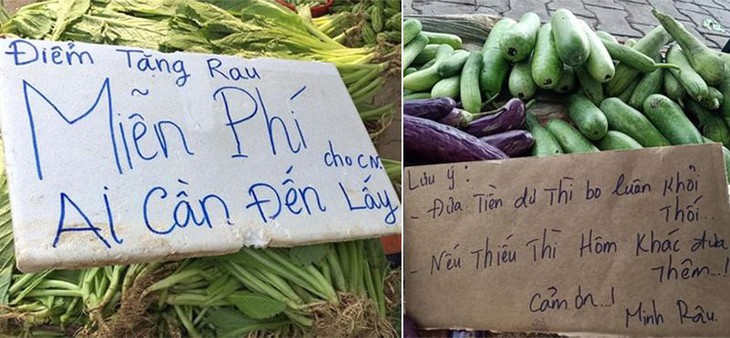 Điểm Tặng Rau
Miễn Phí
cho CN
Ai Cần Đến Lấy
Lưu ý:
- Đưa Tiền dư Thì bo luôn Khỏi
Thối...
- Nếu Thiếu Thì Hôm Khác đưa
Thêm...!
Cảm ơn...!
Minh Râu